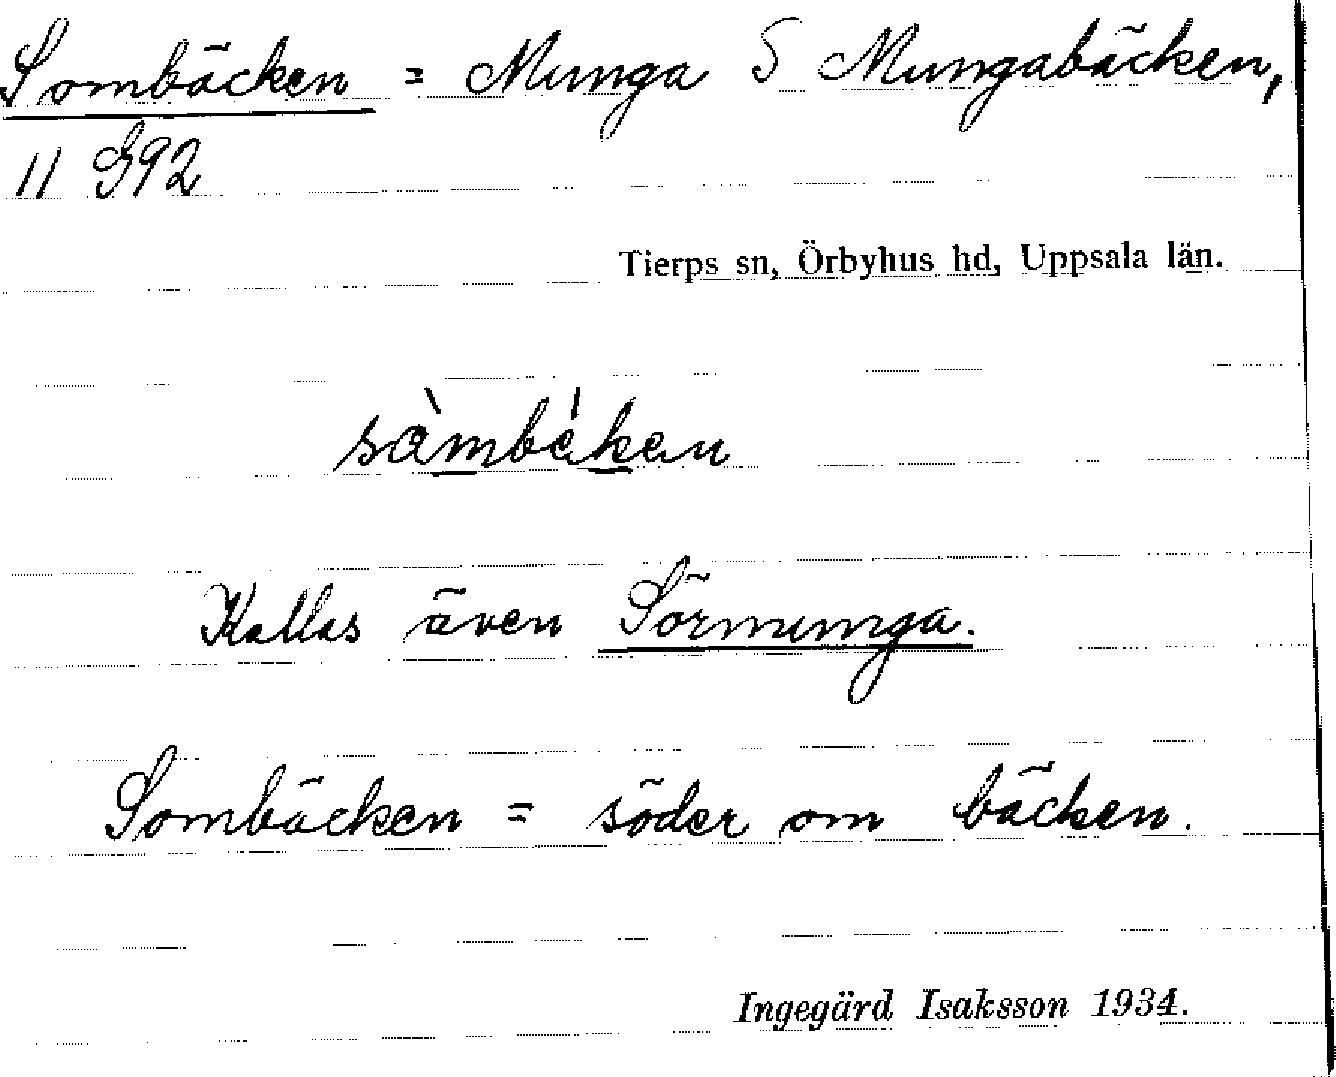 Sombäcken = Munga S Mungabäcken,
11 G92
Tierps sn, Örbyhus hd, Uppsala län.
sàmbèken
Kallas även Sörmunga.
Sombäcken = söder om bäcken.
Ingegärd Isaksson 1934.